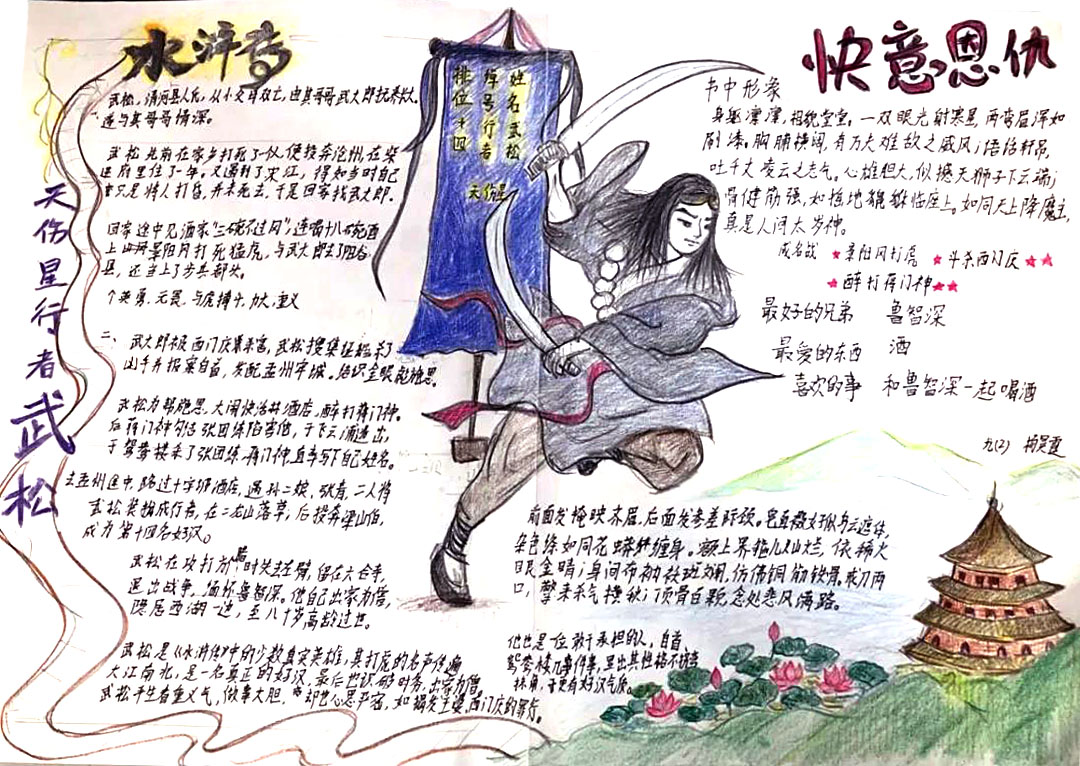 水浒传
武松,清河县人氏,从小父母双亡,由其哥哥武大郎抚养长大。
遂与其哥哥情深。
武松先前在家乡打死了一人,便投奔沧州,在柴
进府里住了一年。又遇到了宋江,得知当时自己
只是将人打昏,并未死去,于是回家找武大郎。
回家途中见酒家“三碗不过冈”,连喝十八碗酒
上山冈景阳冈打死猛虎,与武大郎在了阳谷
县,还当上了步兵都头。
个英勇、无畏,与虎搏斗,力大,重义
二、武大郎被西门庆害,武松搜集证据杀了
凶手并报案自首,发配孟州牢城。结识金眼彪施恩。
武松为帮施恩,大闹快活林酒店,醉打蒋门神。
后蒋门神勾结张团练陷害他,于飞云浦逃出,
于鸳鸯楼杀了张团练、蒋门神,且亲写下自己姓名。
去孟州途中,路过十字坡酒店,遇孙二娘,张青,二人将
武松装扮成行者,在二龙山落草,后投奔梁山伯,
成为第十四名好汉。
武松在攻打方腊时失去左臂,留在六合寺,
退出战争,缅怀鲁智深。他自己出家为僧,
隐居西湖一边,至八十岁高龄过世。
武松是《水浒传》中的少数真实英雄,其打虎的名声传遍
大江南北,是一名真正的好汉,最后也识够时务,出家为僧
武松平生看重义气,做事大胆,却也心思严密,如揭发王婆、西门庆的罪行。
天伤星行者武松
姓名武松
绰号行者
排位十四
天伤星
快意恩仇
书中形象
身躯凛凛,相貌堂堂,一双眼光射寒星,两弯眉浑如
刷漆。胸脯横阔,有万夫难敌之威风;语话轩昂,
吐千丈凌云之志气。心雄胆大,似撼天狮子下云端;
骨健筋强,如摇地貔貅临座上。如同天上降魔主,
真是人间太岁神。
成名战 景阳冈打虎 斗杀西门庆
醉打蒋门神
最好的兄弟 鲁智深
最爱的东西 酒
喜欢的事 和鲁智深一起喝酒
九(2)
前面发掩映齐眉,后面发参差际颈。皂直裰好似乌云遮体,
杂色绦如同花蟒缠身。额上界箍儿灿烂,依稀火
眼金睛;身间布衲袄斑斓,仿佛铜筋铁骨。戒刀两
口,擎来杀气横秋;顶骨百颗,念处悲风满路。
他也是一位敢于承担的人,自首,
鸳鸯楼事件等,显出其性格不
抹角,于更有好汉气质。